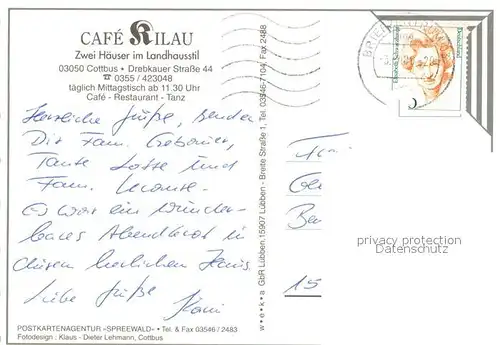 CAFÉ KILAU
Zwei Häuser im Landhausstil
03050 Cottbus • Drebkauer Straße 44
☎ 0355 / 423048
täglich Mittagstisch ab 11.30 Uhr
Café - Restaurant - Tanz
Herzliche Grüße, senden
Dir Fam.
Tante Lotte und
Fam.
Es war ein wunder-
bares Abendbrot in
diesem herrlichen Haus.
Liebe Grüße
POSTKARTENAGENTUR »SPREEWALD« • Tel. & Fax 03546 / 2483
Fotodesign : Klaus - Dieter Lehmann, Cottbus
w • e • k • a GbR Lübben, 15907 Lübben - Breite Straße 1, Tel. 03546-7104, Fax 2488
Deutschland
15
privacy protection
Datenschutz